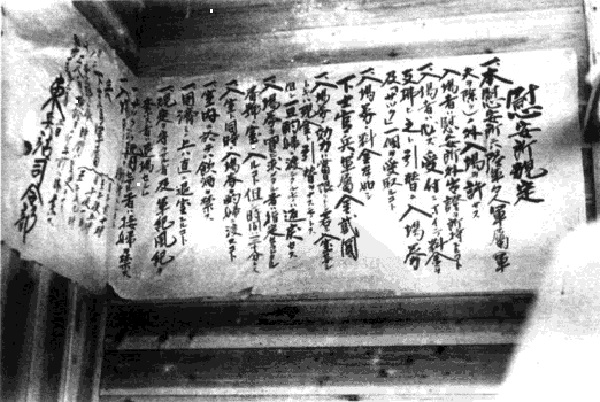 慰安所規定
一、本慰安所ニハ陸軍々人軍属(軍
夫ヲ除ク)ノ外入場ヲ許サス
一、入場者ハ慰安所外出證ヲ所持スルコト
一、入場者ハ必ス受付ニオイテ料金ヲ
支拂ヒ之ト引替ニ入場券
及「サック」一個ヲ受取ルコト
一、入場券ノ料金左ノ如シ
下士官、兵、軍属金貳圓
一、入場券ノ効力ハ當日限リトシ若シ入室セ
サルトキハ現金ト引替ヲナスモノトス
但シ一旦酌婦ニ渡シタルモノハ返戻セス
一、入場券ヲ買求メタル者ハ指定セラレタル
番號ノ室ニ入ルコト但シ時間ハ三十分トス
一、入室ト同時ニ入場券ヲ酌婦ニ渡スコト
一、室内ニ於テハ飲酒ヲ禁ス
一、用済ミノ上ハ直ニ退室スルコト
一、規定ヲ守ラサル者及軍紀風紀ヲ
紊ス者ハ退場セシム
一、サックヲ使用セサル者ハ接婦ヲ禁ス
東兵站司令部